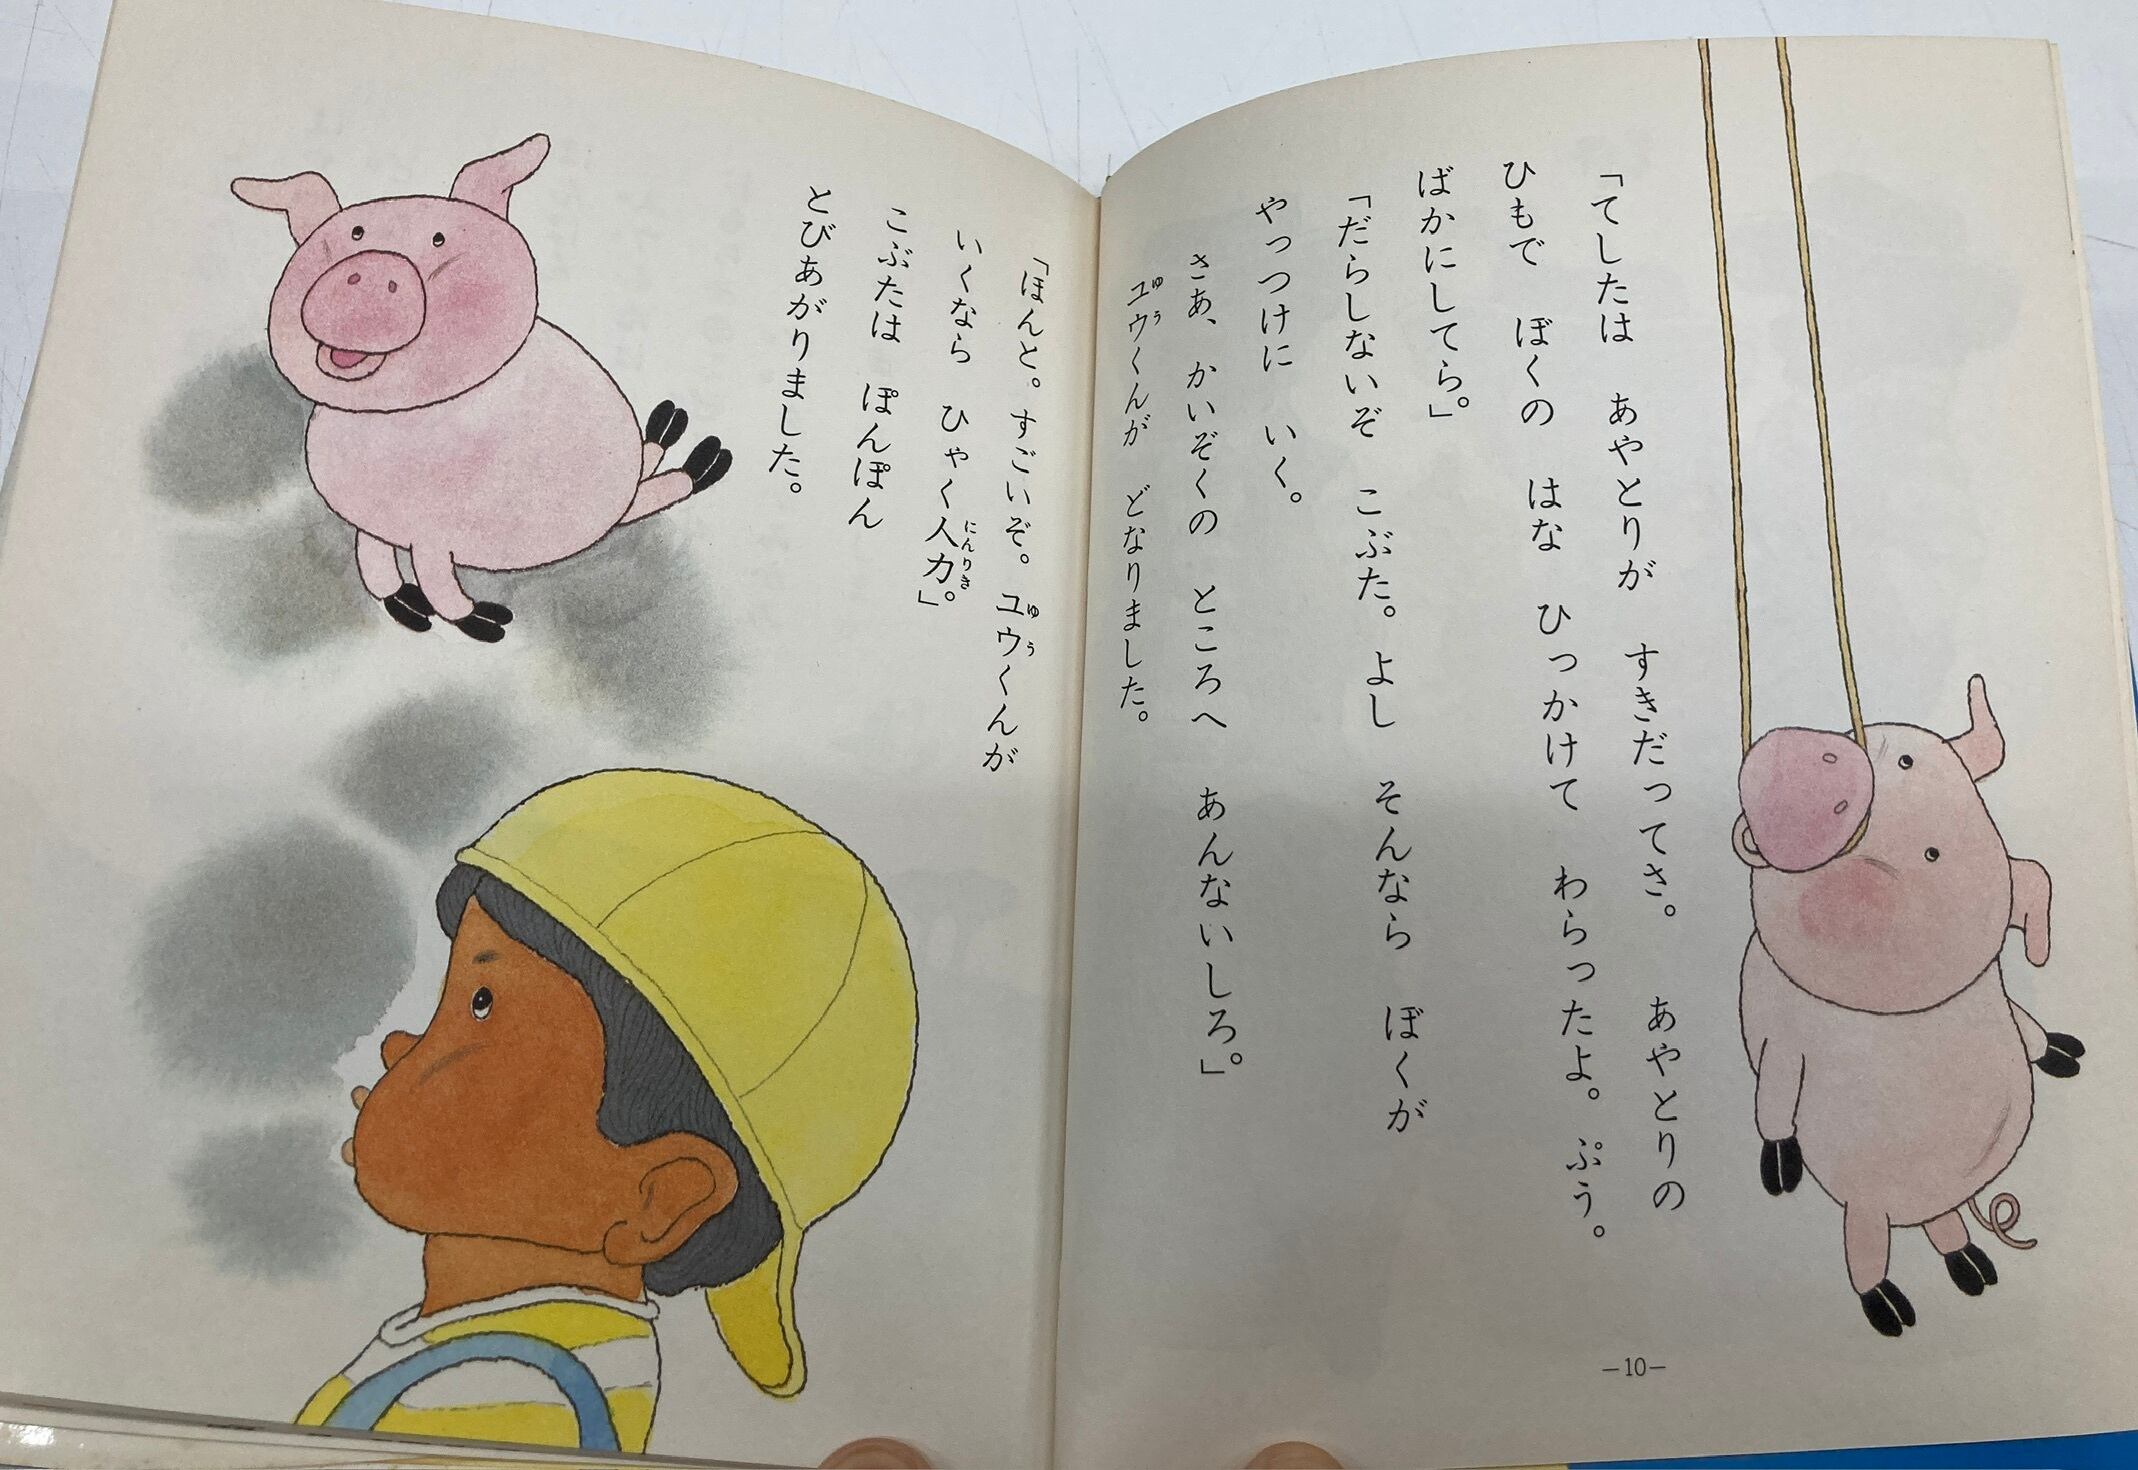 「てしたは　あやとりが　すきだってさ。　あやとりの
ひもで　ぼくの　はな　ひっかけて　わらったよ。ぷう。
ばかにしてら。」
「だらしないぞ　こぶた。よし　そんなら　ぼくが
やっつけに　いく。
さあ、かいぞくの　ところへ　あんないしろ。」
ユウくんが　どなりました。
ゆう
—10—
「ほんと。すごいぞ。ユウくんが
ゆう
いくなら　ひゃく人力。」
にんりき
こぶたは　ぽんぽん
とびあがりました。